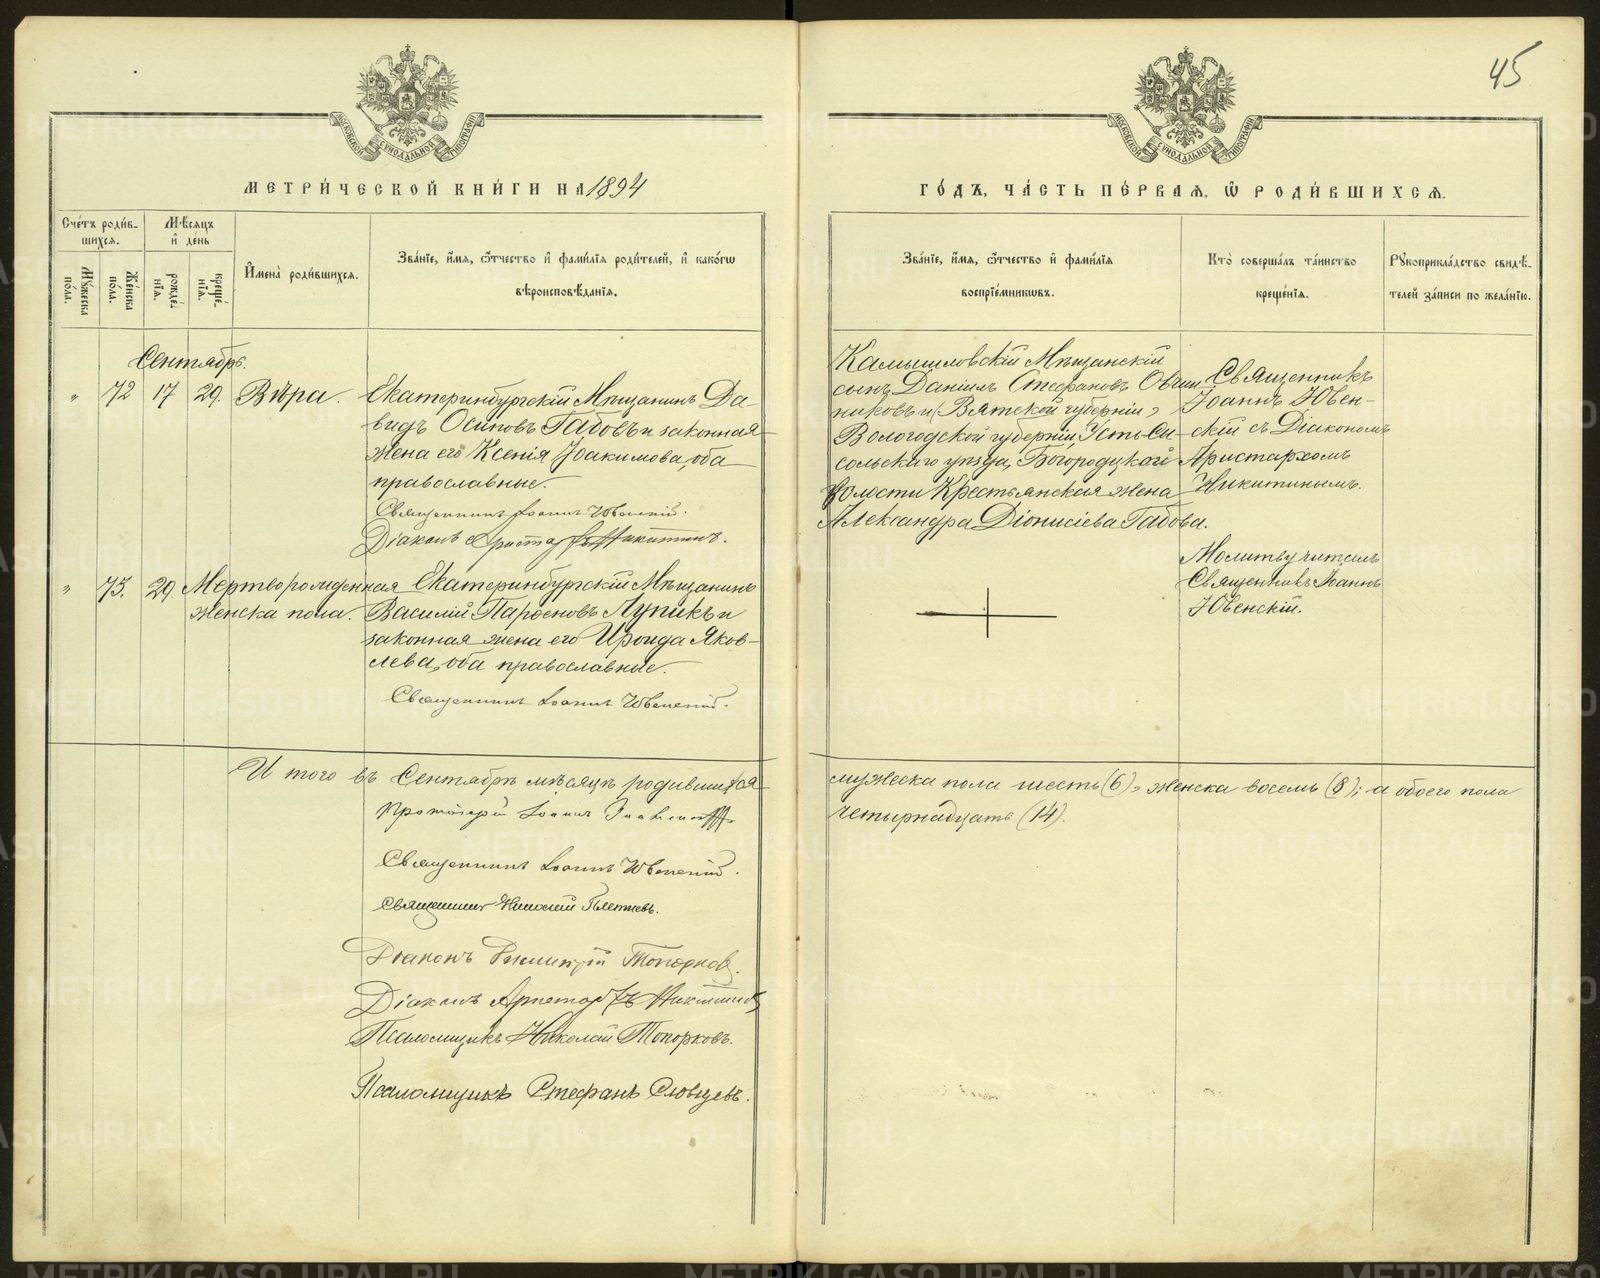 45
МОСКОВСКОЙ СѴНОДАЛЬНОЙ ТИПОГРАФІИ
МОСКОВСКОЙ СѴНОДАЛЬНОЙ ТИПОГРАФІИ
МЕТРИ́ЧЕСКОЙ КНИ́ГИ НА 1894
ГО́ДЪ, ЧА́СТЬ ПЕ́РВАѦ, Ѽ РОДИ́ВШИХСѦ.
Сче́тъ роди́в-
шихсѧ.
Мѣ́сѧцъ
и̂ де́нь
Мꙋ́жеска по́ла.
Же́нска по́ла.
рожде́нїѧ.
креще́нїѧ.
И̂мена̀ роди́вшихсѧ.
Зва́нїе, и́мѧ, ѻ́тчество и̂ фами́лїѧ роди́телей, и̂ како́гѡ
вѣроисповѣ́данїѧ.
Зва́нїе, и́мѧ, ѻ́тчество и̂ фами́лїѧ
воспрїе́мникѡвъ.
Кто̀ соверша́лъ та́инство
креще́нїѧ.
Рꙋкоприкла́дство свидѣ́-
телей за́писи по жела́нїю.
Сентябрь.
" 72 17 29. Вѣра.
Екатеринбургскій Мѣщанинъ Да-
видъ Осиповъ Габовъ и законная
жена его Ксенія Іоакимова, оба
православные.
Священникъ Іоаннъ Ювенскій.
Діаконъ Аристархъ Никитинъ.
Камышловскій Мѣщанскій
сынъ Даніилъ Стефановъ Овчин-
никовъ и (Вятской губерніи,
Вологодской губерніи, Усть-Сы-
сольскаго уѣзда, Богородцкой
волости Крестьянская жена
Александра Діонисіева Габова.
Священникъ
Іоаннъ Ювен-
скій съ Діакономъ
Аристархомъ
Никитинымъ.
" 73. 29 Мертворожденная
женска пола.
Екатеринбургскій Мѣщанинъ
Василій Парѳеновъ Лупикъ и
законная жена его Ироида Яков-
лева, оба православные.
Священникъ Іоаннъ Ювенскій.
Молитву читалъ
Священникъ Іоаннъ
Ювенскій.
И того въ Сентябрѣ мѣсяцѣ родившихся
мужеска пола шесть (6), женска восемь (8); а обоего пола
четырнадцать (14).
Протоіерей Іоаннъ
Священникъ Іоаннъ Ювенскій.
Священникъ Николай Плетневъ.
Діаконъ Димитрій Топорковъ.
Діаконъ Аристархъ Никитинъ
Псаломщикъ Николай Топорковъ.
Псаломщикъ Стефанъ Словцевъ.
METRIKI.GASO-URAL.RU